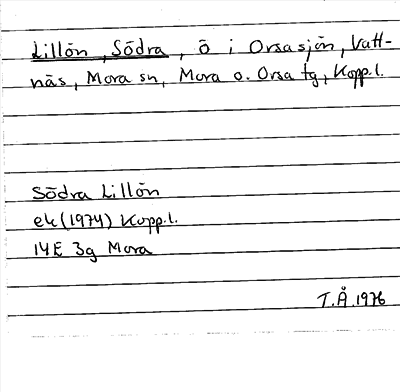 Lillön, Södra, ö i Orsasjön, Vatt-
näs, Mora sn, Mora o. Orsa tg, Kopp.l.
Södra Lillön
ek (1974) Kopp.l.
14E 3g Mora
T.Å.1976